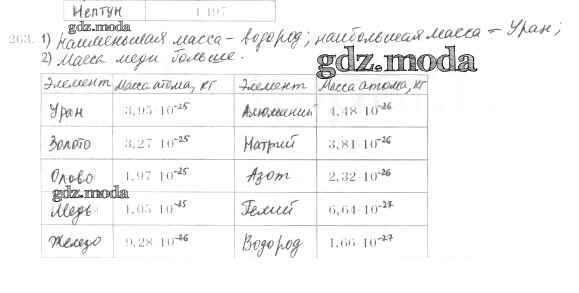 Нептун 4 497
gdz.moda
263. 1) Наименьшая масса – водород; наибольшая масса – Уран;
2) Масса меди больше.
gdz.moda
Элемент Масса атома, кг Элемент Масса атома, кг
Уран 3,95·10⁻²⁵ Алюминий 4,48·10⁻²⁶
Золото 3,27·10⁻²⁵ Натрий 3,81·10⁻²⁶
Олово 1,97·10⁻²⁵ Азот 2,32·10⁻²⁶
gdz.moda
Медь 1,05·10⁻²⁵ Гелий 6,64·10⁻²⁷
Железо 9,28·10⁻²⁶ Водород 1,66·10⁻²⁷